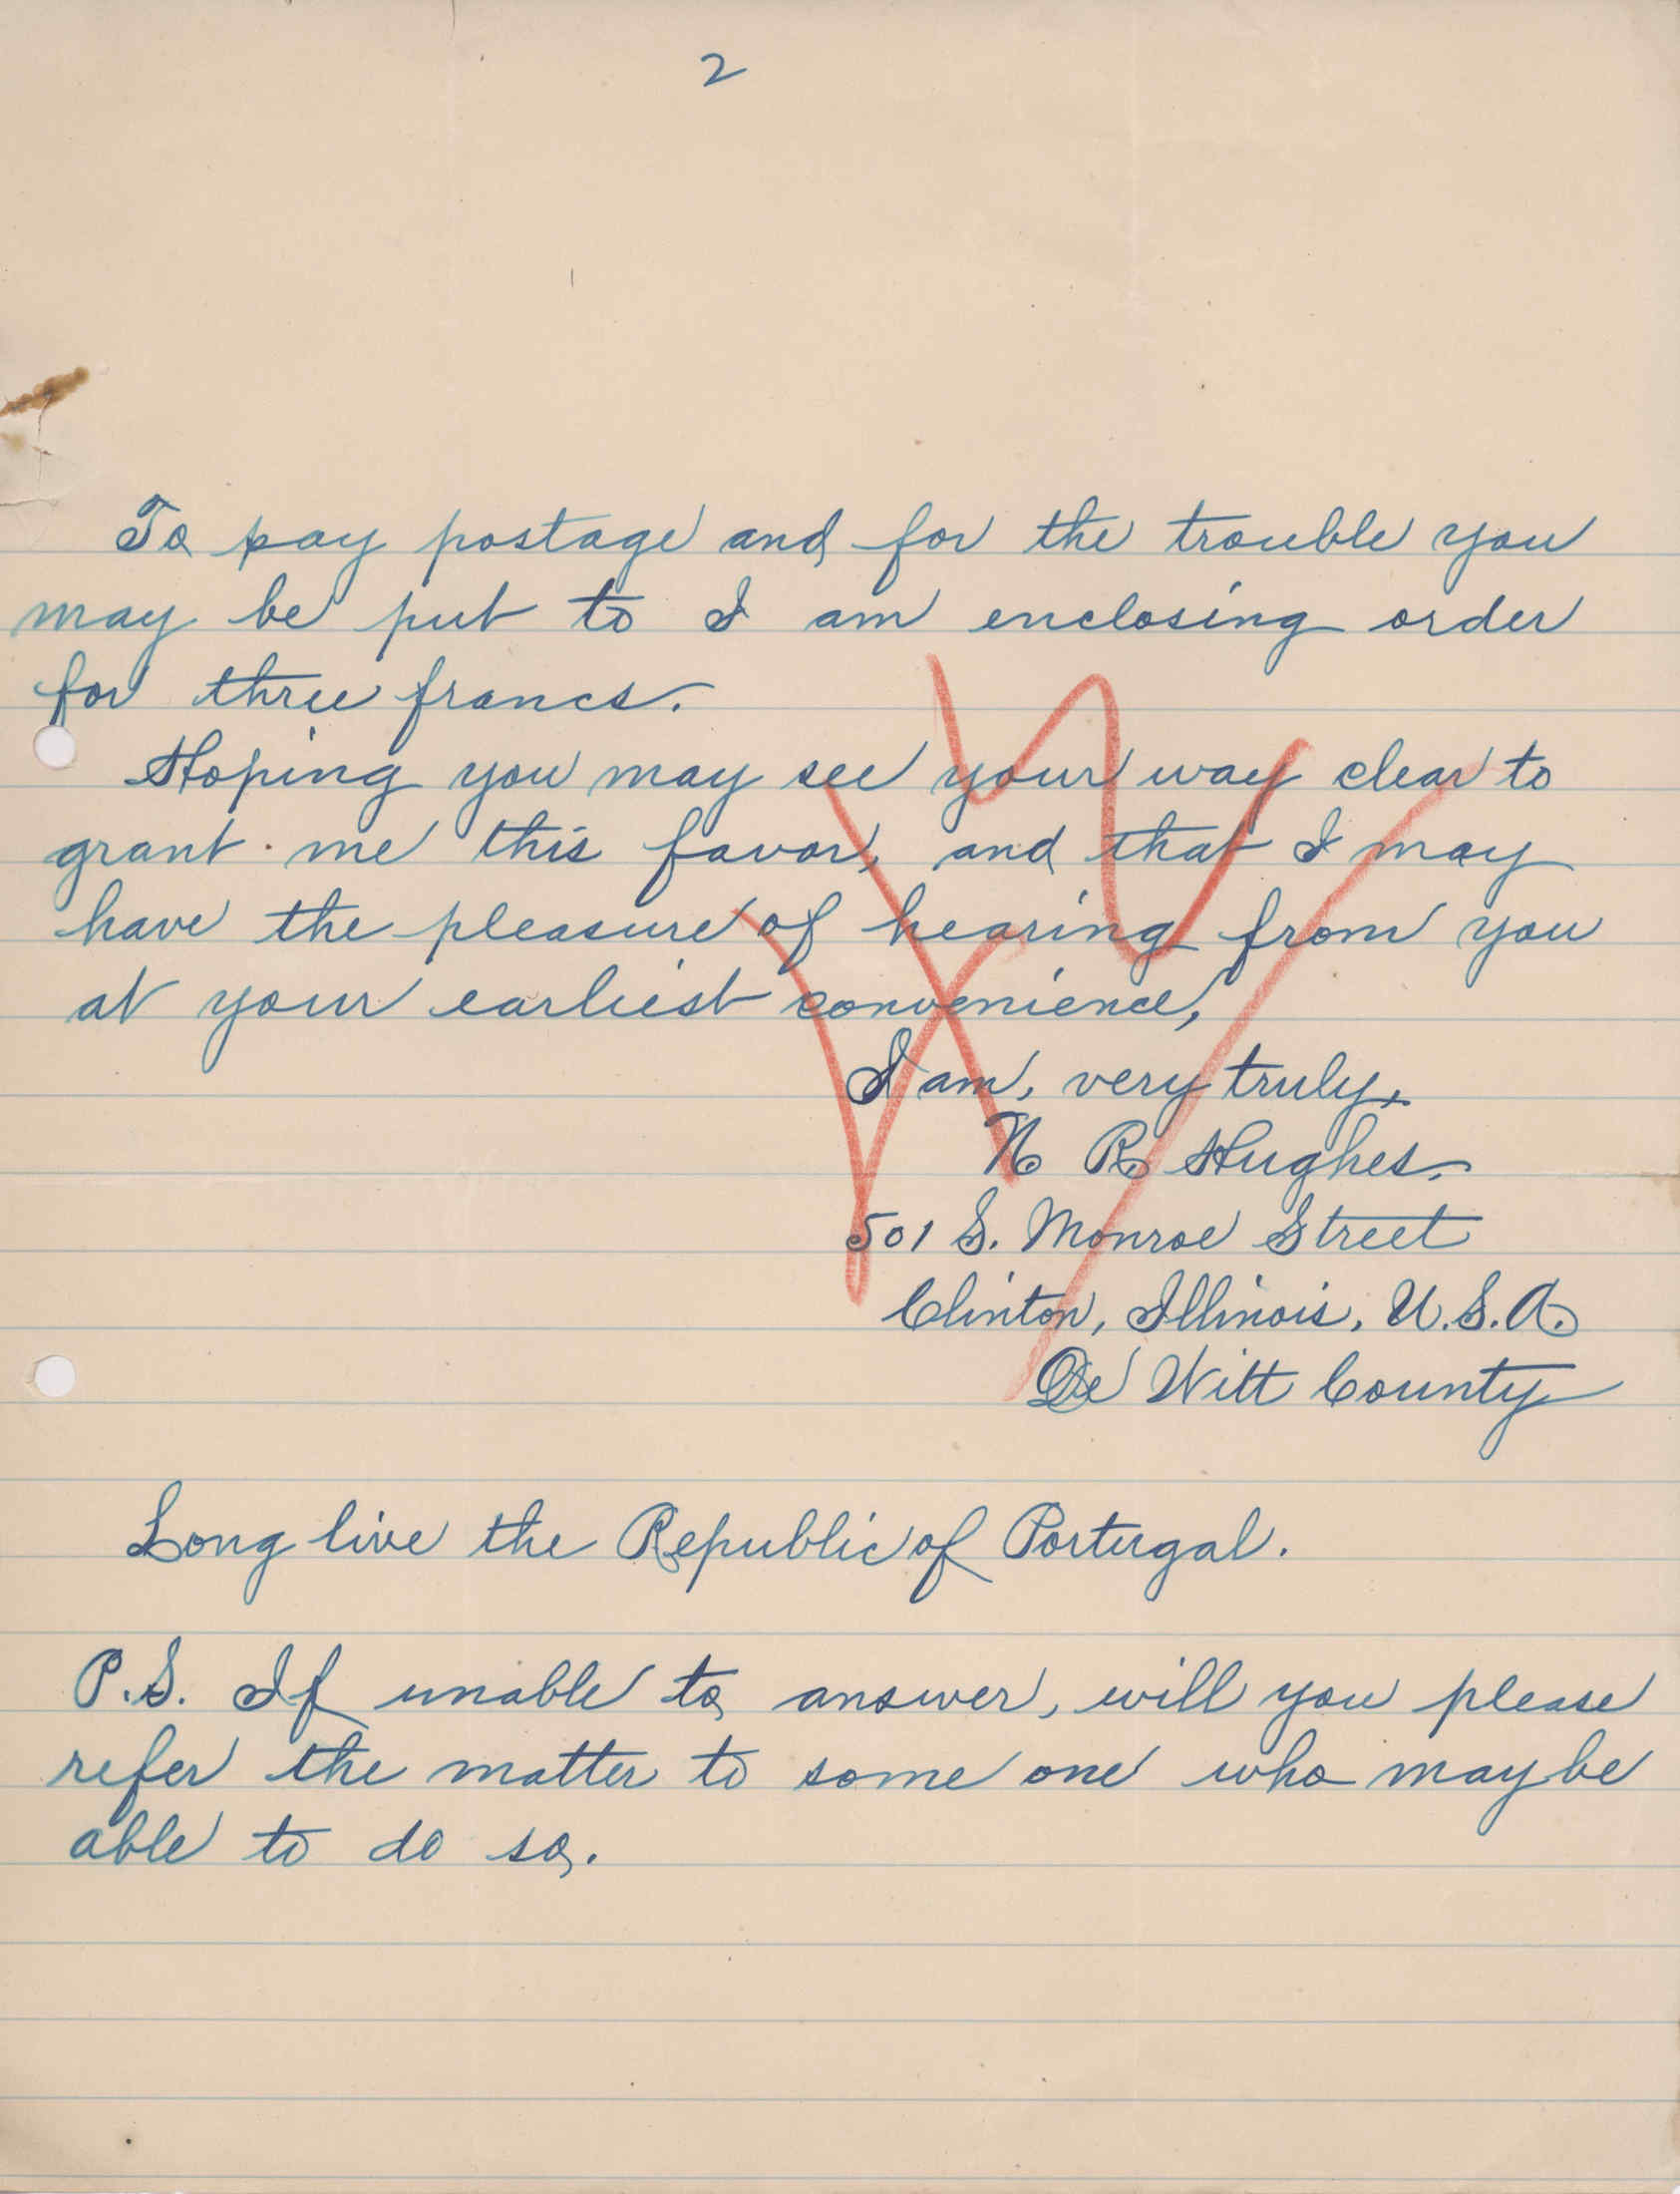 2
To pay postage and for the trouble you
may be put to I am enclosing order
for three francs.
Hoping you may see your way clear to
grant me this favor, and that I may
have the pleasure of hearing from you
at your earliest convenience,
I am, very truly,
N R Hughes.
501 S. Monroe Street
Clinton, Illinois, U.S.A.
De Witt County
Long live the Republic of Portugal.
P.S. If unable to answer, will you please
refer the matter to some one who may be
able to do so.